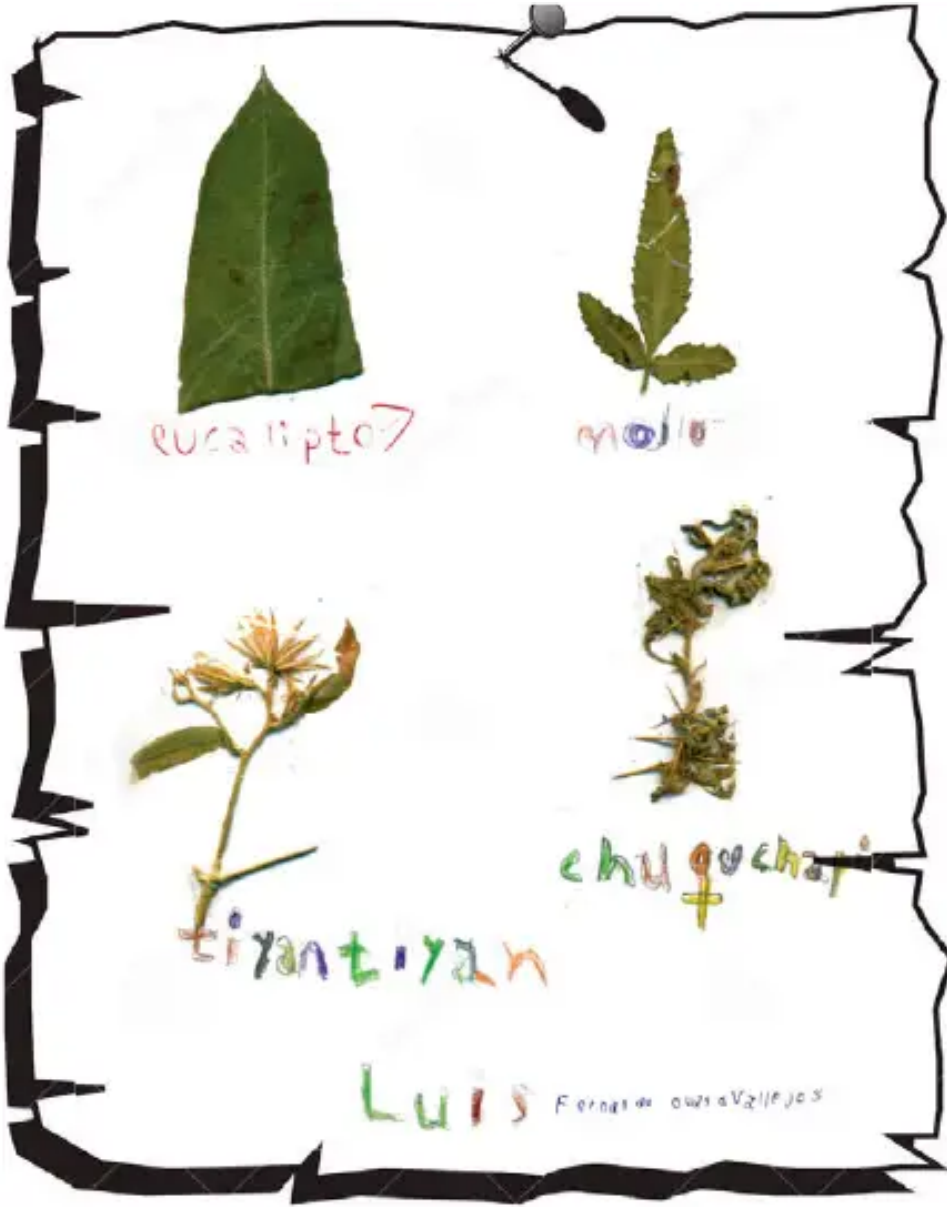 eucalipto
molle
chuquchapi
tiyantiyan
Luis Fernando Vallejos